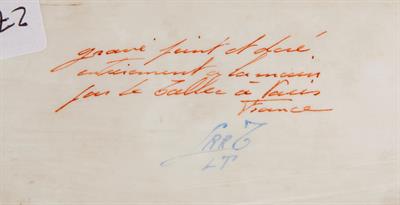 gravé peint et doré
entièrement à la main
par le Tallec à Paris
France
LT